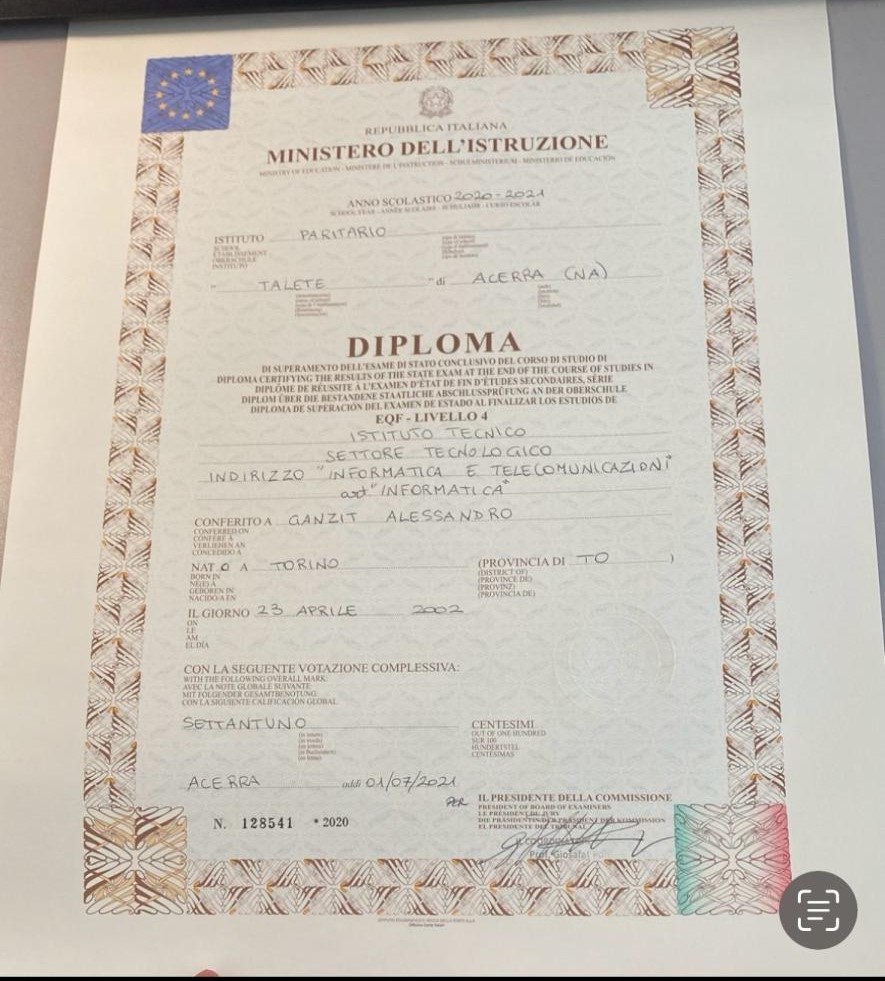 REPUBBLICA ITALIANA
MINISTERO DELL'ISTRUZIONE
MINISTRY OF EDUCATION - MINISTÈRE DE L'INSTRUCTION - SCHULMINISTERIUM - MINISTERIO DE EDUCACIÓN
ANNO SCOLASTICO 2020-2021
SCHOOL YEAR - ANNÉE SCOLAIRE - SCHULJAHR - CURSO ESCOLAR
ISTITUTO PARITARIO
SCHOOL
ÉTABLISSEMENT
OBERSCHULE
INSTITUTO
" TALETE " di ACERRA (NA)
DIPLOMA
DI SUPERAMENTO DELL'ESAME DI STATO CONCLUSIVO DEL CORSO DI STUDIO DI
DIPLOMA CERTIFYING THE RESULTS OF THE STATE EXAM AT THE END OF THE COURSE OF STUDIES IN
DIPLÔME DE RÉUSSITE À L'EXAMEN D'ÉTAT DE FIN D'ÉTUDES SECONDAIRES, SÉRIE
DIPLOM ÜBER DIE BESTANDENE STAATLICHE ABSCHLUSSPRÜFUNG AN DER OBERSCHULE
DIPLOMA DE SUPERACIÓN DEL EXAMEN DE ESTADO AL FINALIZAR LOS ESTUDIOS DE
EQF - LIVELLO 4
ISTITUTO TECNICO
SETTORE TECNOLOGICO
INDIRIZZO "INFORMATICA E TELECOMUNICAZIONI"
art "INFORMATICA"
CONFERITO A GANZIT ALESSANDRO
CONFERRED ON
CONFÉRÉ À
VERLIEHEN AN
CONCEDIDO A
NATO A TORINO (PROVINCIA DI TO )
BORN IN (DISTRICT OF)
NÉ(E) À (PROVINCE DE)
GEBOREN IN (PROVINZ)
NACIDO/A EN (PROVINCIA DE)
IL GIORNO 23 APRILE 2002
ON
LE
AM
EL DIA
CON LA SEGUENTE VOTAZIONE COMPLESSIVA:
WITH THE FOLLOWING OVERALL MARK
AVEC LA NOTE GLOBALE SUIVANTE
MIT FOLGENDER GESAMTBENOTUNG
CON LA SIGUIENTE CALIFICACIÓN GLOBAL
SETTANTUNO CENTESIMI
OUT OF ONE HUNDRED
SUR 100
HUNDERTSTEL
CENTÉSIMAS
ACERRA addì 01/07/2021
PER IL PRESIDENTE DELLA COMMISSIONE
PRESIDENT OF BOARD OF EXAMINERS
LE PRÉSIDENT DU JURY
DIE PRÄSIDENTIN/DER PRÄSIDENT DER KOMMISSION
EL PRESIDENTE DEL TRIBUNAL
N. 128541 * 2020